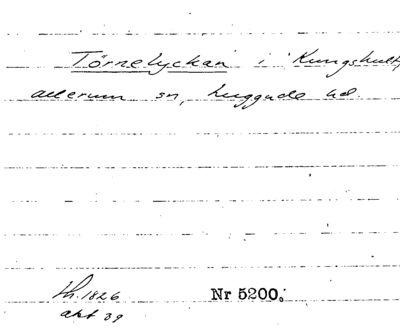 Törnelyckan i Kungshult,
allerum sn, Luggude hd.
Lh. 1826 Nr 5200.
akt 39